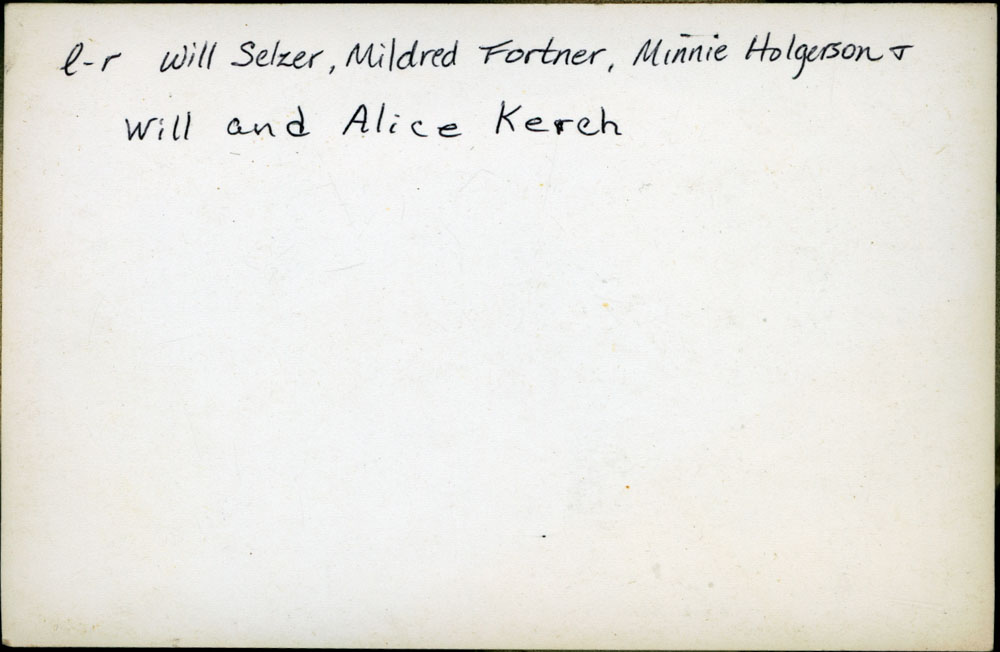 l-r Will Selzer, Mildred Fortner, Minnie Holgerson &
Will and Alice Kerch